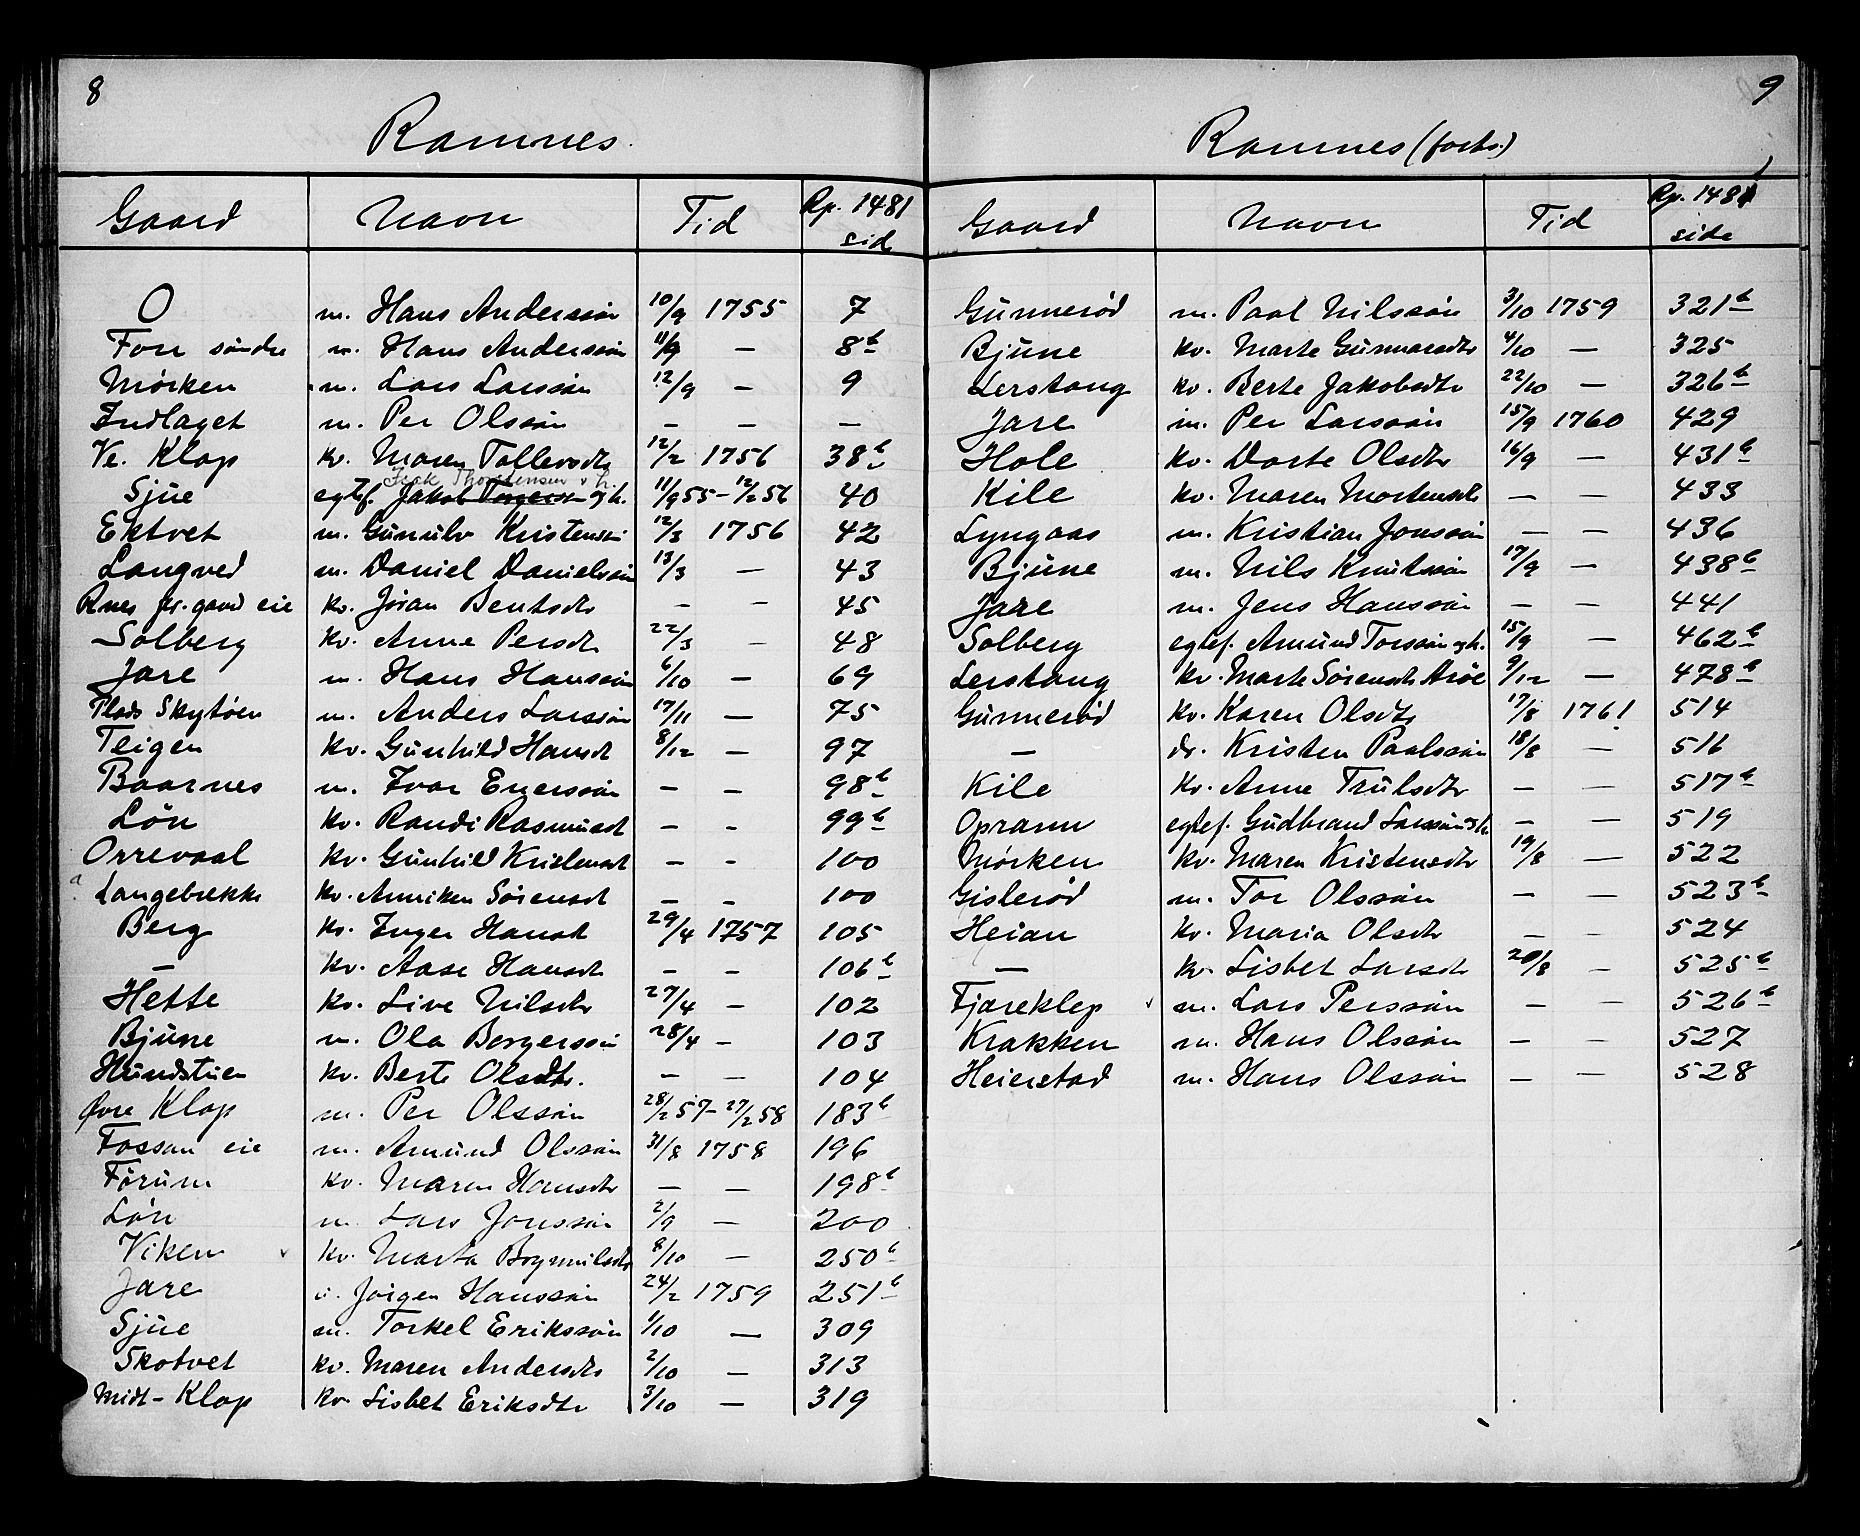 8
Ramnes.
Gaard Navn Tid Rp. 1481 side
O m. Hans Anderssøn 10/9 1755 7
Fon søndre m. Hans Anderssøn 11/9 — 8b
Mørken m. Lars Larssøn 12/9 — 9
Indlaget m. Per Olssøn — — —
Ve. Klop kv. Maren Tollevsdtr 12/2 1756 38b
Isak Thorstensen o h.
Sjue egtef. Jakob Torgersøn og h. 11/9 55 – 12/2 56 40
Ektvet m. Gunulv Kristenssøn 12/3 1756 42
Langved m. Daniel Danielssøn 13/3 — 43
Rnes pr. gaard eie kv. Jøran Bentsdtr — — 45
Solberg kv. Anne Persdt 22/3 — 48
Jare m. Hans Hanssøn 6/10 — 69
Plads Skytøen m. Anders Larssøn 17/11 — 75
Teigen kv. Gunhild Hansdt 8/12 — 97
Baarnes m. Ivar Enerssøn — — 98b
Løn kv. Randi Rasmusdt — — 99b
Orrevaal kv. Gunhild Kristensdt — — 100
a Langebrekke kv. Anniken Sørensdt — — 100
Berg kv. Inger Hansdt 29/4 1757 105
— kv. Aase Hansdt — — 106b
Hette kv. Live Nilsdtr 27/4 — 102
Bjune m. Ola Borgerssøn 28/4 — 103
Hundstuen kv. Berte Olsdtr. — — 104
Øvre Klop m. Per Olssøn 28/2 57 – 27/2 58 183b
Fossan eie m. Amund Olssøn 31/8 1758 196
Førum kv. Maren Hansdtr — — 198b
Løn m. Lars Jonssøn 2/9 — 200
Viken v kv. Marta Brynnilsdtr 8/10 — 250b
Jare Jørgen Hanssøn 24/2 1759 251b
Sjue m. Torkel Erikssøn 1/10 — 309
Skotvet kv. Maren Andersdtr 2/10 — 313
Midt-Klop kv. Lisbet Eriksdtr 3/10 — 319
9
Ramnes (forts.)
Gaard Navn Tid Rp. 1481 side
Gunnerød m. Paal Nilssøn 3/10 1759 321b
Bjune kv. Marte Gunnarsdtr 4/10 — 325
Lerstang kv. Berte Jakobsdtr 22/10 — 326b
Jare m. Per Larssøn 15/9 1760 429
Hole kv. Dorte Olsdtr 16/9 — 431b
Kile kv. Maren Mortensdt — — 433
Lyngaas m. Kristian Jonssøn — — 436
Bjune m. Nils Knutssøn 17/9 — 438b
Jare m. Jens Hanssøn — — 441
Solberg egtef. Amund Torssøn og h. 15/9 — 462b
Lerstang kv. Marte Sørensdt Arøe 9/12 — 478b
Gunnerød kv. Karen Olsdtr 17/8 1761 514
— dr. Kristen Paalssøn 18/8 — 516
Kile kv. Anne Trulsdtr — — 517b
Oprann egtef. Gudbrand Larssøn og h — — 519
Mørken kv. Maren Kristensdtr 19/8 — 522
Gislerød m. Tor Olssøn — — 523b
Heian kv. Maria Olsdtr — — 524
— kv. Lisbet Larsdt 20/8 — 525b
Fjæreklep v m. Lars Perssøn — — 526b
Krakken m. Hans Olssøn — — 527
Heierstad m. Hans Olssøn — — 528